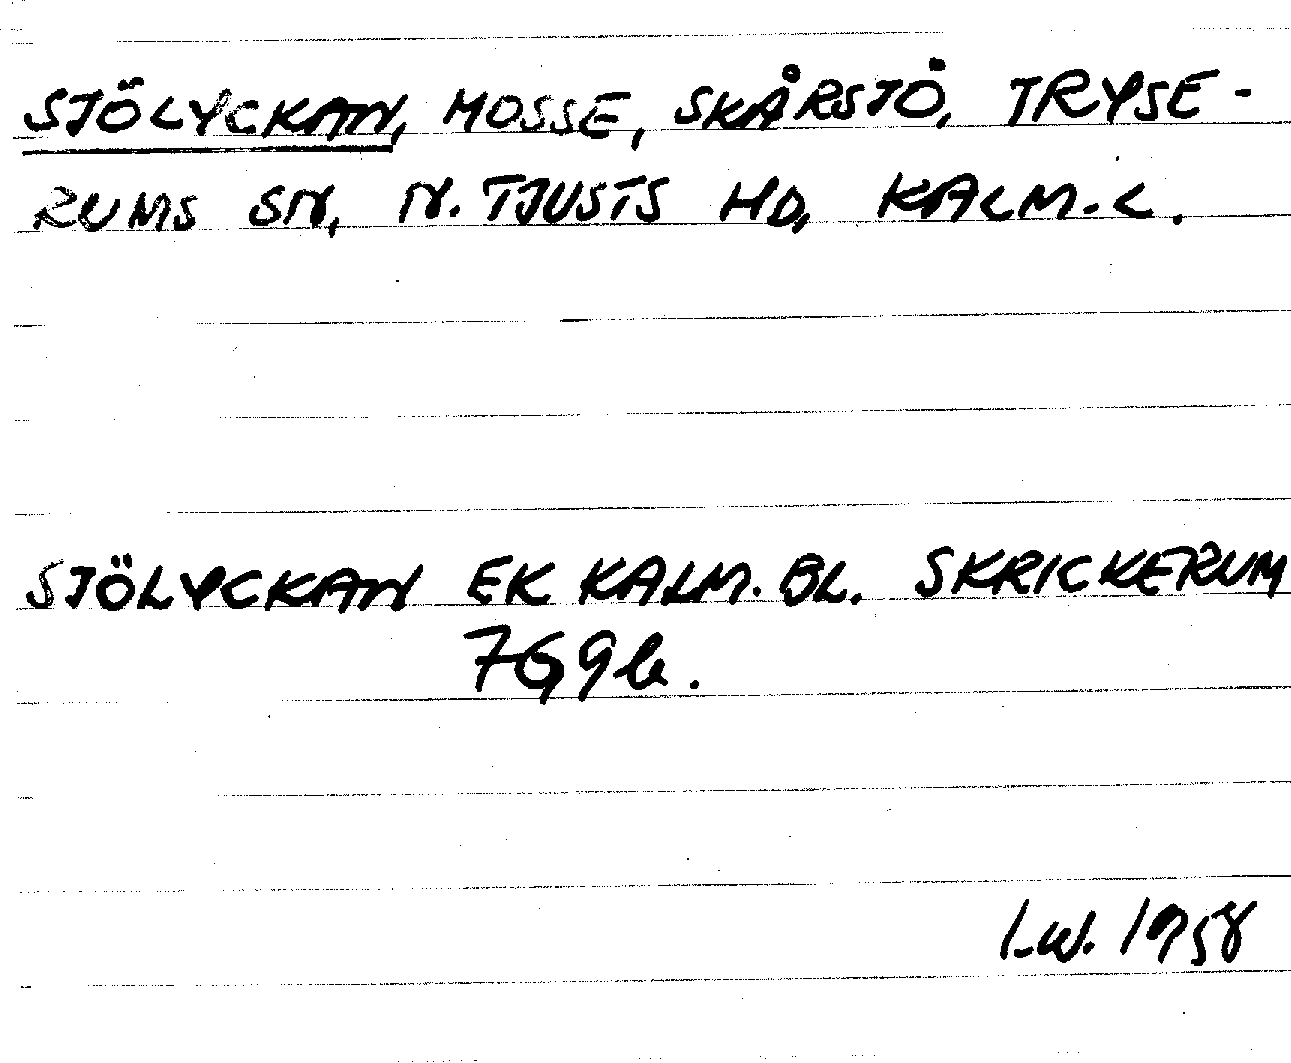 SJÖLYCKAN, MOSSE, SKÅRSJÖ, TRYSE-
RUMS SN, N. TJUSTS HD, KALM. L.
SJÖLYCKAN EK KALM. BL. SKRICKERUM
7G9b.
I.W. 1958